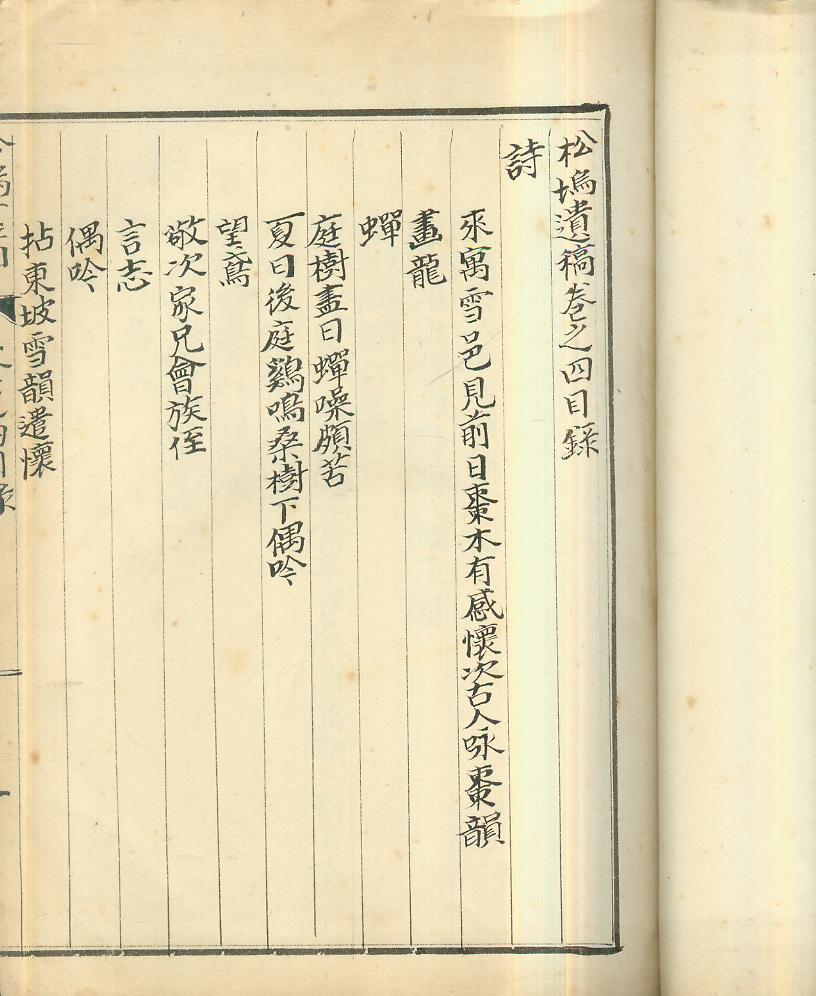 松塢遺稿卷之四目錄
詩
來寓雪邑見前日棗木有感懷次古人咏棗韻
畫龍
蟬
庭樹盡日蟬噪頗苦
夏日後庭鷄鳴桑樹下偶吟
望鳶
敬次家兄會族侄
言志
偶吟
拈東坡雪韻遣懷